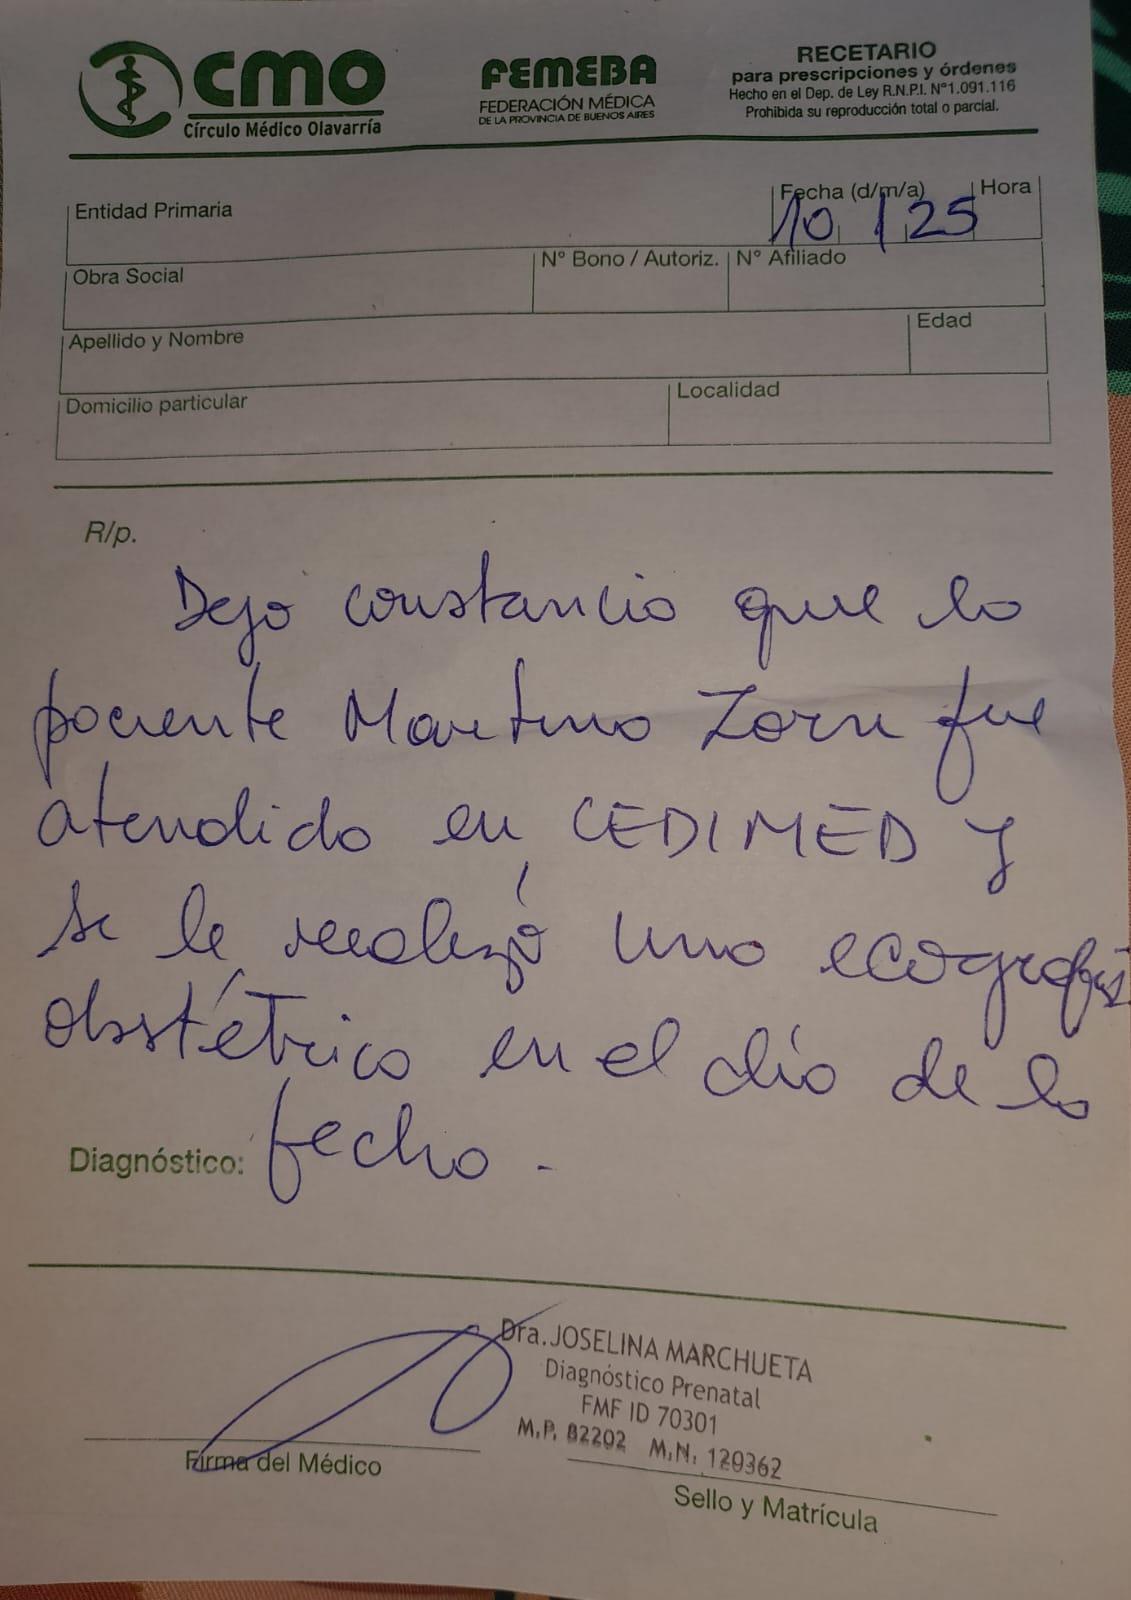 CMO
Círculo Médico Olavarría
FEMEBA
FEDERACIÓN MÉDICA
DE LA PROVINCIA DE BUENOS AIRES
RECETARIO
para prescripciones y órdenes
Hecho en el Dep. de Ley R.N.P.I. N°1.091.116
Prohibida su reproducción total o parcial.
Entidad Primaria
Fecha (d/m/a) Hora
10 / 25
Obra Social
N° Bono / Autoriz.
N° Afiliado
Apellido y Nombre
Edad
Domicilio particular
Localidad
R/p.
Dejo constancia que la
paciente Martina Zorn fue
atendida en CEDIMED y
se le realizó una ecografía
obstétrica en el día de la
fecha.
Diagnóstico:
Dra. JOSELINA MARCHUETA
Diagnóstico Prenatal
FMF ID 70301
M.P. 82202 M.N. 120362
Firma del Médico
Sello y Matrícula